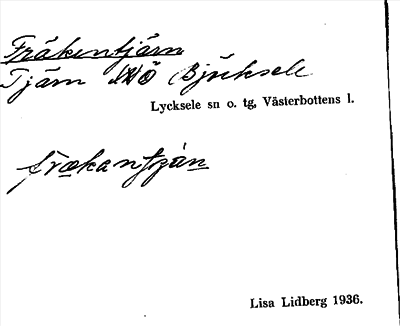 Fräkentjärn
Tjärn NNÖ Bjuksele
Lycksele sn o. tg, Västerbottens l.
frækantjàn
Lisa Lidberg 1936.